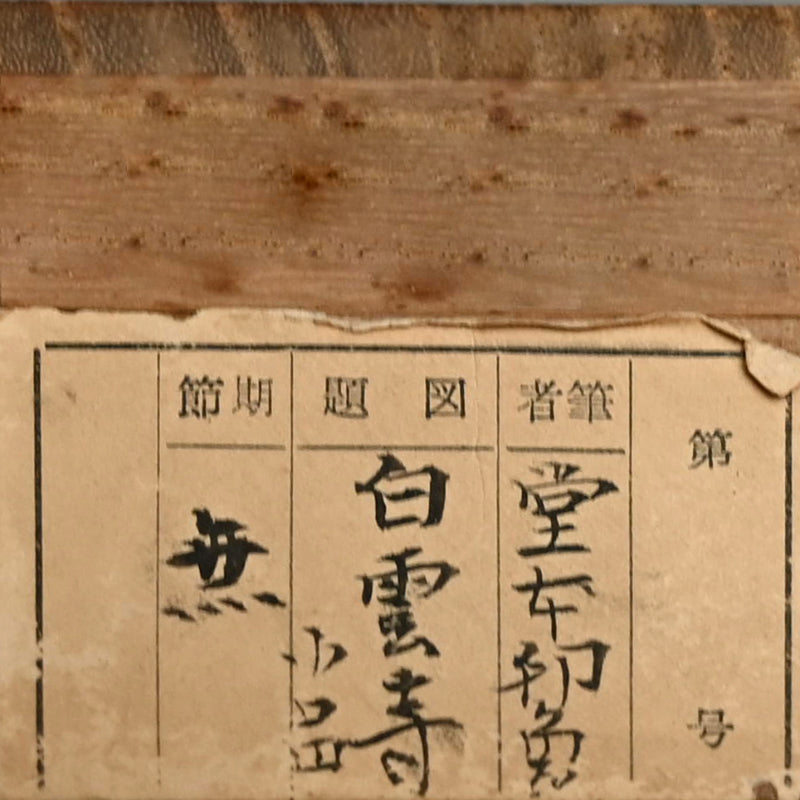 第 号
筆者
堂本印象
図題
白雲寺
小品
期節
無